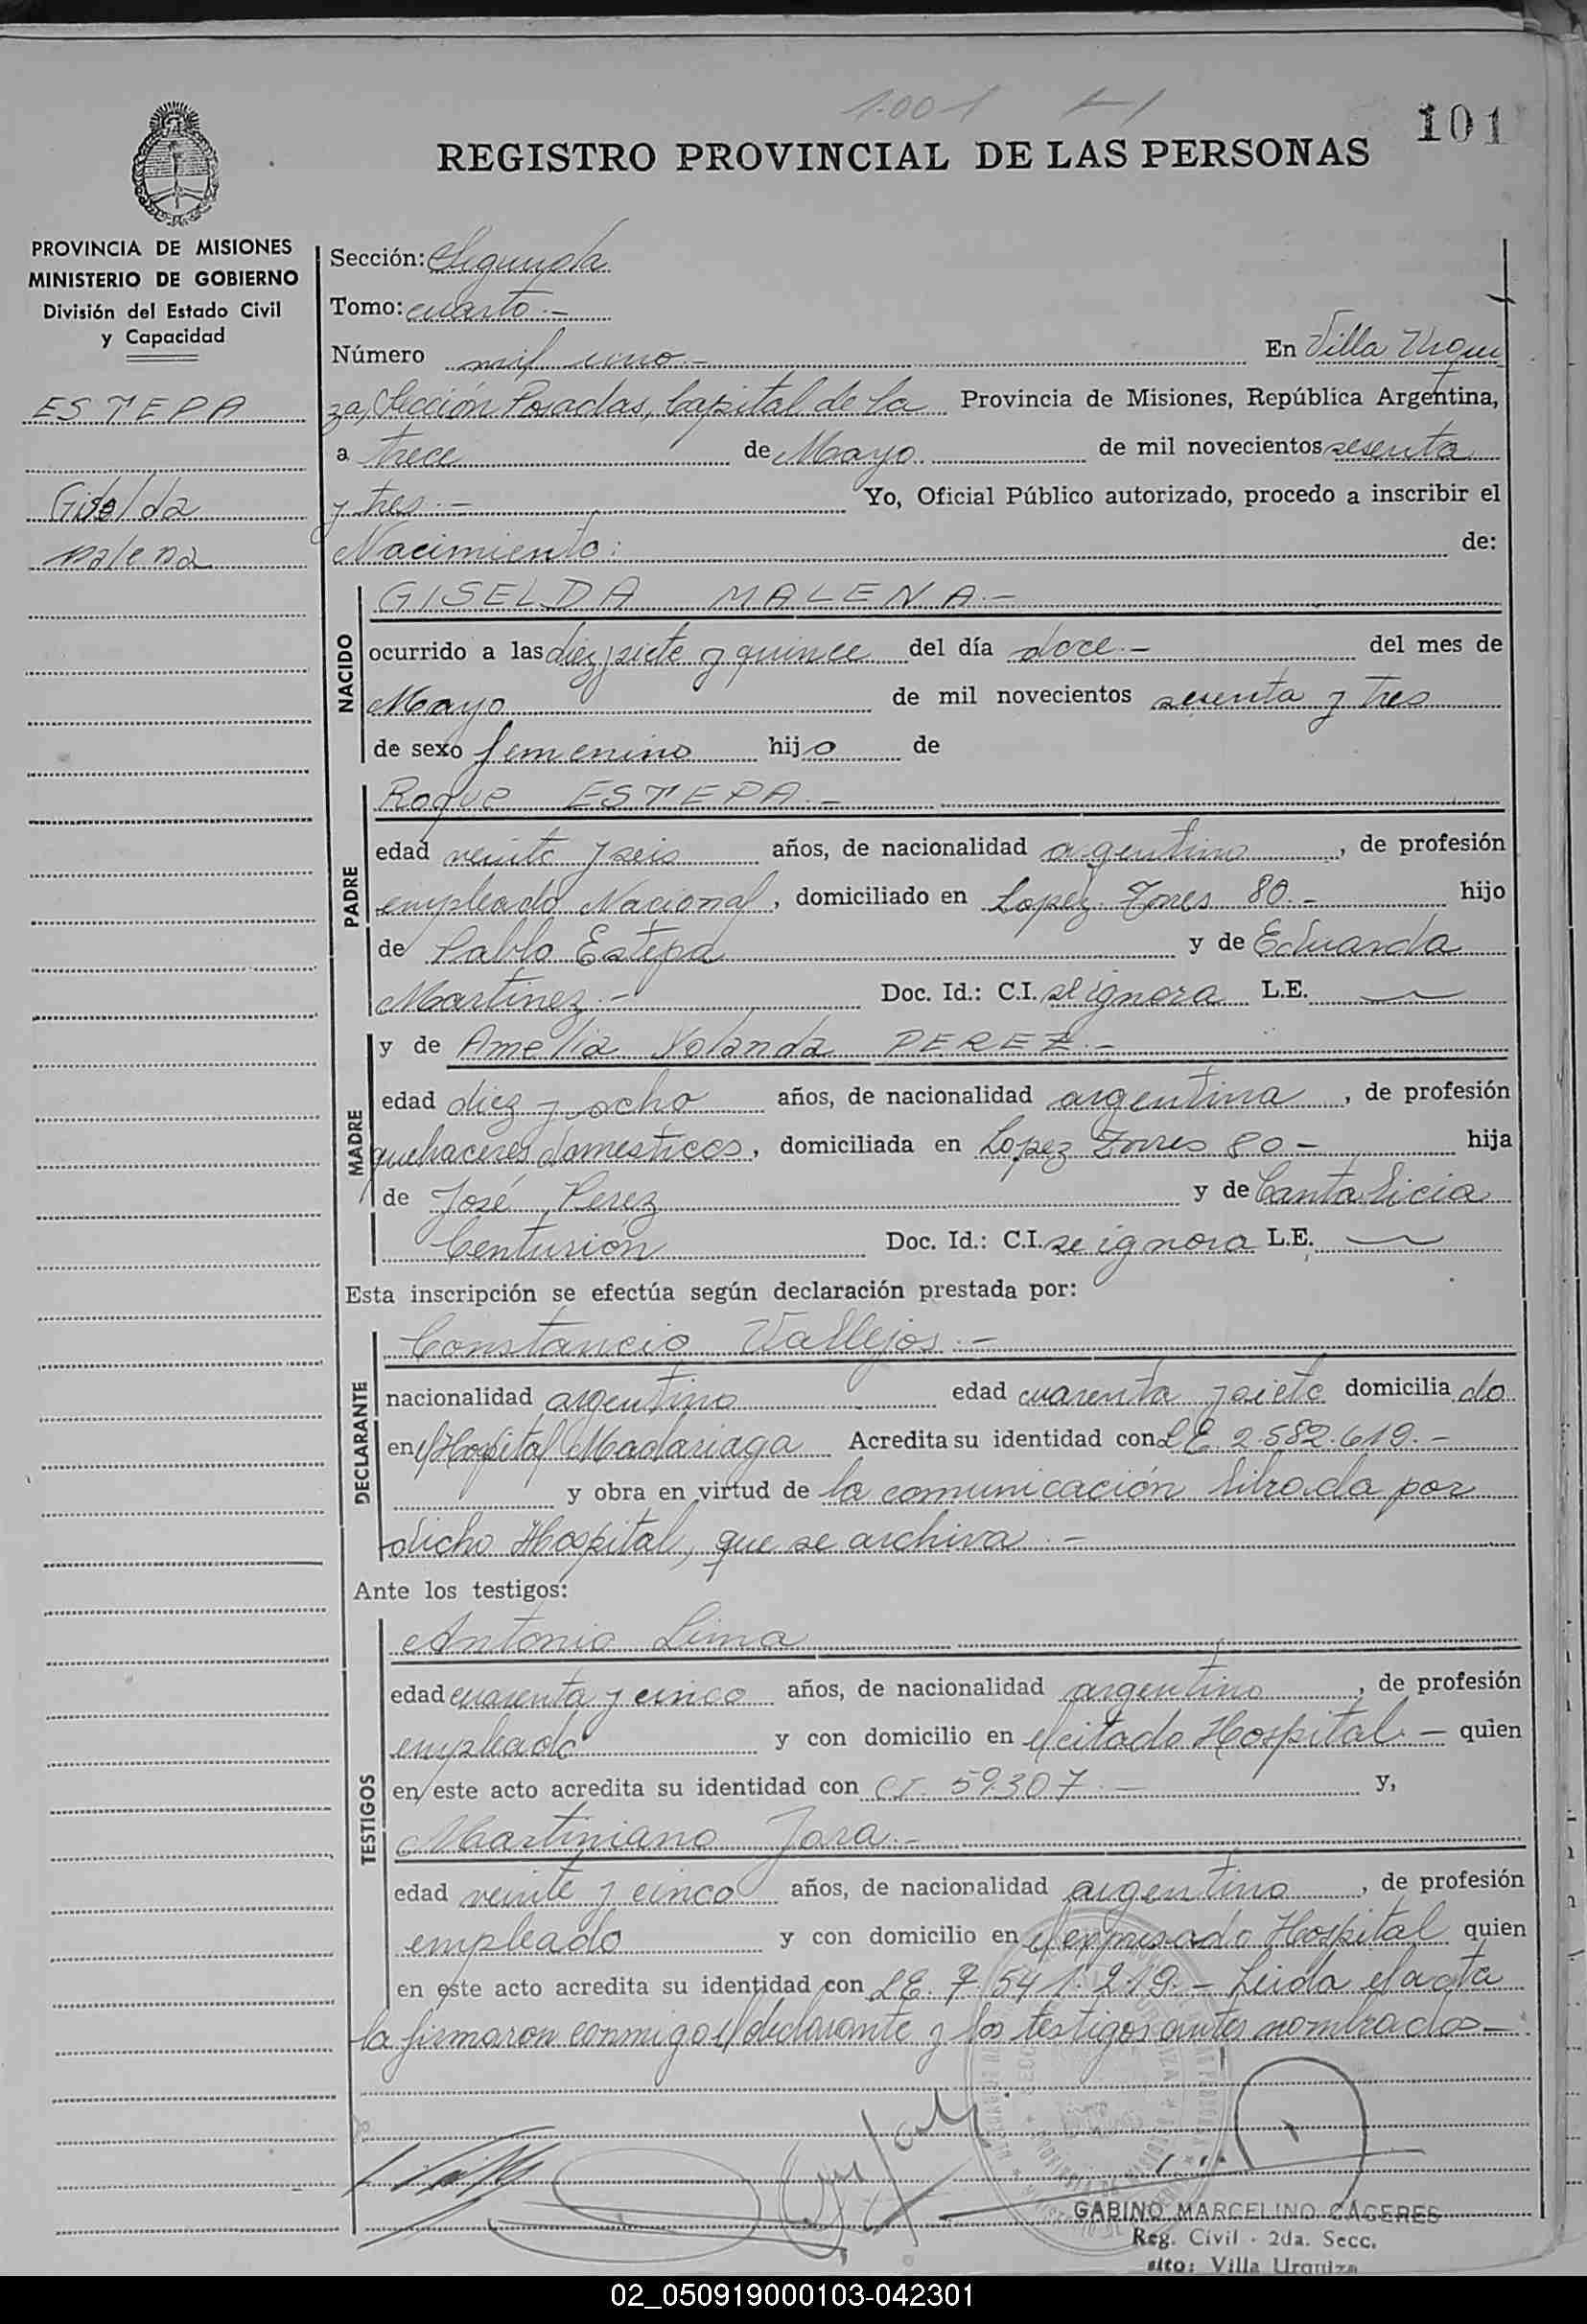 1.001
101
REGISTRO PROVINCIAL DE LAS PERSONAS
PROVINCIA DE MISIONES
MINISTERIO DE GOBIERNO
División del Estado Civil
y Capacidad
ESTEPA
Giselda
Malena
Sección: Segunda
Tomo: cuarto.-
Número mil uno.- En Villa Urqui
za, Sección Posadas, Capital de la Provincia de Misiones, República Argentina,
a trece de Mayo de mil novecientos sesenta
y tres.- Yo, Oficial Público autorizado, procedo a inscribir el
Nacimiento: de:
NACIDO
GISELDA MALENA.-
ocurrido a las diez y siete y quince del día doce.- del mes de
Mayo de mil novecientos sesenta y tres
de sexo femenino hijo de
PADRE
Roque ESTEPA.-
edad veinte y seis años, de nacionalidad argentino, de profesión
empleado Nacional, domiciliado en Lopez Torres 80.- hijo
de Pablo Estepa y de Eduarda
Martinez.- Doc. Id.: C.I. se ignora L.E.
MADRE
y de Amelia Yolanda PEREZ.-
edad diez y ocho años, de nacionalidad argentina, de profesión
quehaceres domesticos, domiciliada en Lopez Torres 80- hija
de José Perez y de Cantalicia
Centurion Doc. Id.: C.I. se ignora L.E.
Esta inscripción se efectúa según declaración prestada por:
DECLARANTE
Constancio Vallejos.-
nacionalidad argentino edad cuarenta y siete domiciliado
en el Hospital Madariaga Acredita su identidad con LE 2.582.619.-
y obra en virtud de la comunicación librada por
dicho Hospital, que se archiva.-
Ante los testigos:
TESTIGOS
Antonio Lima
edad cuarenta y cinco años, de nacionalidad argentino, de profesión
empleado y con domicilio en el citado Hospital.- quien
en este acto acredita su identidad con CI. 59.307.- y,
Martiniano Jara.-
edad veinte y cinco años, de nacionalidad argentino, de profesión
empleado y con domicilio en el expresado Hospital quien
en este acto acredita su identidad con LE. 7.541.219.- Leida el acta
la firmaron conmigo el declarante y los testigos antes nombrados-
GABINO MARCELINO CACERES
Reg. Civil - 2da. Secc.
sito: Villa Urquiza
02_050919000103-042301